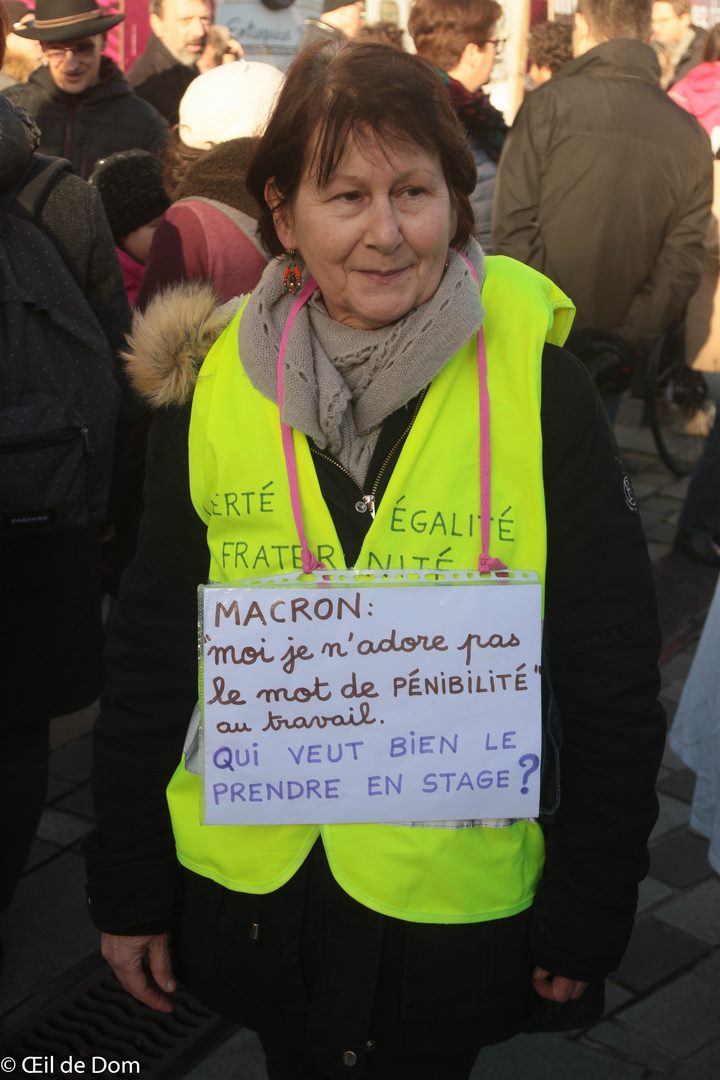 ERTÉ ÉGALITÉ
FRATERNITÉ
MACRON:
"moi je n'adore pas
le mot de PÉNIBILITÉ"
au travail.
QUI VEUT BIEN LE
PRENDRE EN STAGE?
EASTPAK
© Œil de Dom